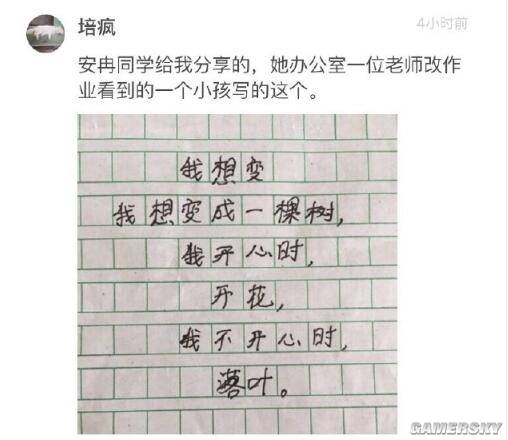 培疯
4小时前
安冉同学给我分享的，她办公室一位老师改作
业看到的一个小孩写的这个。
我想变
我想变成一棵树，
我开心时，
开花，
我不开心时，
落叶。
GAMERSKY